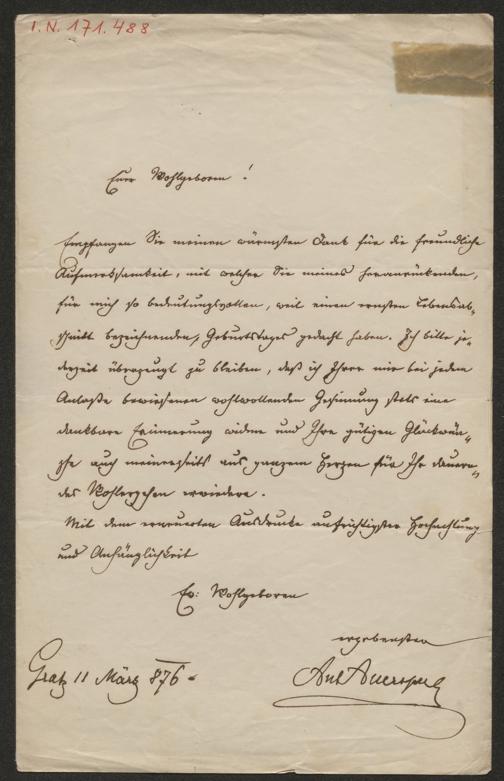 I. N. 171.488
Euer Wohlgeboren!
Empfangen Sie meinen wärmsten Dank für die freundliche
Aufmerksamkeit, mit welcher Sie meines heranrückenden,
für mich so bedeutungsvollen, weil einen ernsten Lebensab-
schnitt bezeichnenden, Geburtstages gedacht haben. Ich bitte je-
derzeit überzeugt zu bleiben, daß ich Ihrer mir bei jedem
Anlaße bewiesenen wohlwollenden Gesinnung stets eine
dankbare Erinnerung widme und Ihre gütigen Glückwün-
sche auch meinerseits aus ganzem Herzen für Ihr dauern-
des Wohlergehen erwiedere.
Mit dem erneuerten Ausdrucke aufrichtigster Hochachtung
und Anhänglichkeit
Ew: Wohlgeboren
ergebenster
Gratz 11 März 876.
Ant Auersperg